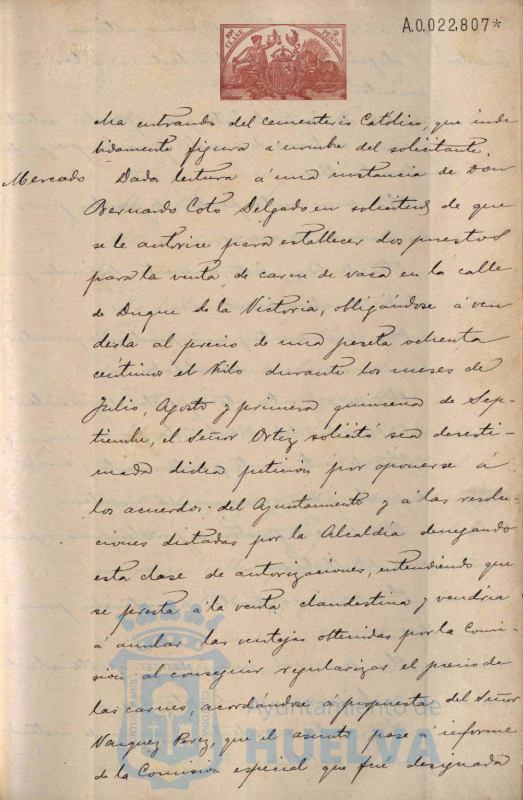 A.0.022.807*
10ª CLASE 2 PESETAS
ma entrando del cementerio Católico, que inde
bidamente figura á nombre del solicitante.
Mercado Dada lectura á una instancia de Don
Bernardo Coto Delgado en solicitud de que
se le autorice para establecer dos puestos
para la venta de carne de vaca en la calle
de Duque de la Victoria, obligándose á ven
derla al precio de una peseta ochenta
céntimos el Kilo durante los meses de
Julio, Agosto y primera quincena de Sep-
tiembre, el Señor Ortiz solicitó sea desesti-
mada dicha peticion por oponerse á
los acuerdos del Ayuntamiento y á las resolu-
ciones dictadas por la Alcaldia denegando
esta clase de autorizaciones, entendiendo que
se presta á la venta clandestina y vendria
á anular las ventajas obtenidas por la Comi-
sion al conseguir regularizar el precio de
las carnes, acordándose á propuesta del Señor
Vazquez Perez, que el asunto pase á informe
de la Comision especial que fué designada
Ayuntamiento de
HUELVA